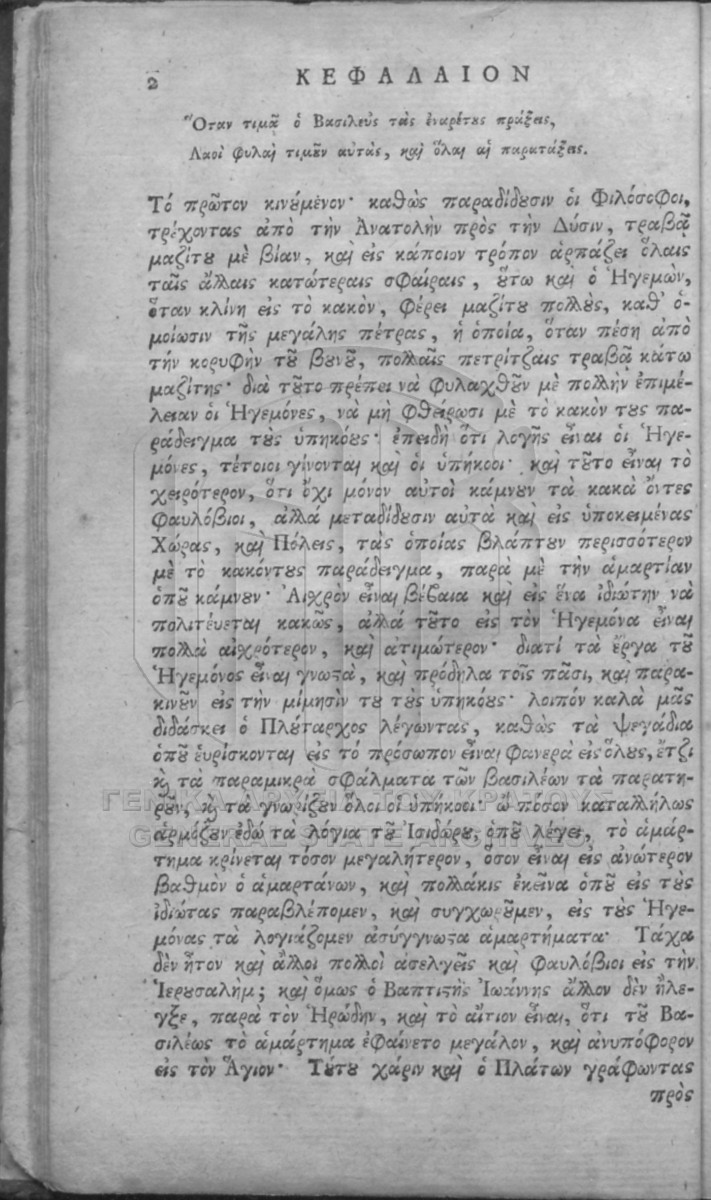 2 ΚΕΦΑΛΑΙΟΝ
Ὅταν τιμᾷ ὁ Βασιλεὺς τὰς ἐναρέτους πράξεις,
Λαοὶ φυλαὶ τιμοῦν αὐτὰς, καὶ ὅλαι αἱ παρατάξεις.
Τὸ πρῶτον κινούμενον· καθὼς παραδίδουσιν οἱ Φιλόσοφοι,
τρέχοντας ἀπὸ τὴν Ἀνατολὴν πρὸς τὴν Δύσιν, τραβᾷ
μαζίτου μὲ βίαν, καὶ εἰς κάποιον τρόπον ἁρπάζει ὅλαις
ταῖς ἄλλαις κατώτεραις σφαίραις, οὕτω καὶ ὁ Ἡγεμὼν,
ὅταν κλίνῃ εἰς τὸ κακὸν, φέρει μαζίτου πολλοὺς, καθ' ὁ-
μοίωσιν τῆς μεγάλης πέτρας, ἡ ὁποία, ὅταν πέσῃ ἀπὸ
τὴν κορυφὴν τοῦ βουνοῦ, πολλαῖς πετρίτζαις τραβᾷ κάτω
μαζίτης· διὰ τοῦτο πρέπει νὰ φυλαχθοῦν μὲ πολλὴν ἐπιμέ-
λειαν οἱ Ἡγεμόνες, νὰ μὴ φθείρωσι μὲ τὸ κακὸν τους πα-
ράδειγμα τοὺς ὑπηκόους· ἐπειδὴ ὅτι λογῆς εἶναι οἱ Ἡγε-
μόνες, τέτοιοι γίνονται καὶ οἱ ὑπήκοοι· καὶ τοῦτο εἶναι τὸ
χειρότερον, ὅτι ὄχι μόνον αὐτοὶ κάμνουν τὰ κακὰ ὄντες
φαυλόβιοι, ἀλλὰ μεταδίδουσιν αὐτὰ καὶ εἰς ὑποκειμένας
Χώρας, καὶ Πόλεις, τὰς ὁποίας βλάπτουν περισσότερον
μὲ τὸ κακόντους παράδειγμα, παρὰ μὲ τὴν ἁμαρτίαν
ὁποῦ κάμνουν· Αἰχρὸν εἶναι βέβαια καὶ εἰς ἕνα ἰδιώτην νὰ
πολιτέυεται κακῶς, ἀλλὰ τοῦτο εἰς τὸν Ἡγεμόνα εἶναι
πολλὰ αἰχρότερον, καὶ ἀτιμώτερον· διατὶ τὰ ἔργα τοῦ
Ἡγεμόνος εἶναι γνωστὰ, καὶ πρόδηλα τοῖς πᾶσι, καὶ παρα-
κινοῦν εἰς τὴν μίμησίν του τοὺς ὑπηκόους· λοιπὸν καλὰ μᾶς
διδάσκει ὁ Πλούταρχος λέγωντας, καθὼς τὰ ψεγάδια
ὁποῦ ἑυρίσκονται εἰς τὸ πρόσωπον εἶναι φανερὰ εἰς ὅλους, ἔτζι
καὶ τὰ παραμικρὰ σφάλματα τῶν βασιλέων τὰ παρατη-
ροῦν, καὶ τὰ γνωρίζουν ὅλοι οἱ ὑπήκοοι· ὢ πόσον καταλλήλως
ἁρμόζουν ἐδώ τὰ λόγια τοῦ Ἰσιδώρου, ὁποῦ λέγει, τὸ ἁμάρ-
τημα κρίνεται τόσον μεγαλήτερον, ὅσον εἶναι εἰς ἀνώτερον
βαθμὸν ὁ ἁμαρτάνων, καὶ πολλάκις ἐκεῖνα ὁποῦ εἰς τοὺς
ἰδιώτας παραβλέπομεν, καὶ συγχωροῦμεν, εἰς τοὺς Ἡγε-
μόνας τὰ λογιάζομεν ἀσύγγνωστα ἁμαρτήματα· Τάχα
δὲν ἦτον καὶ ἄλλοι πολλοὶ ἀσελγεῖς καὶ φαυλόβιοι εἰς τὴν
Ἱερουσαλήμ; καὶ ὅμως ὁ Βαπτιστὴς Ἰωάννης ἄλλον δὲν ἤλε-
γξε, παρὰ τὸν Ἡρώδην, καὶ τὸ αἴτιον εἶναι, ὅτι τοῦ Βα-
σιλέως τὸ ἁμάρτημα ἐφαίνετο μεγάλον, καὶ ἀνυπόφορον
εἰς τὸν Ἅγιον· Τούτου χάριν καὶ ὁ Πλάτων γράφωντας
πρὸς
ΓΕΝΙΚΑ ΑΡΧΕΙΑ ΤΟΥ ΚΡΑΤΟΥΣ
GENERAL STATE ARCHIVES